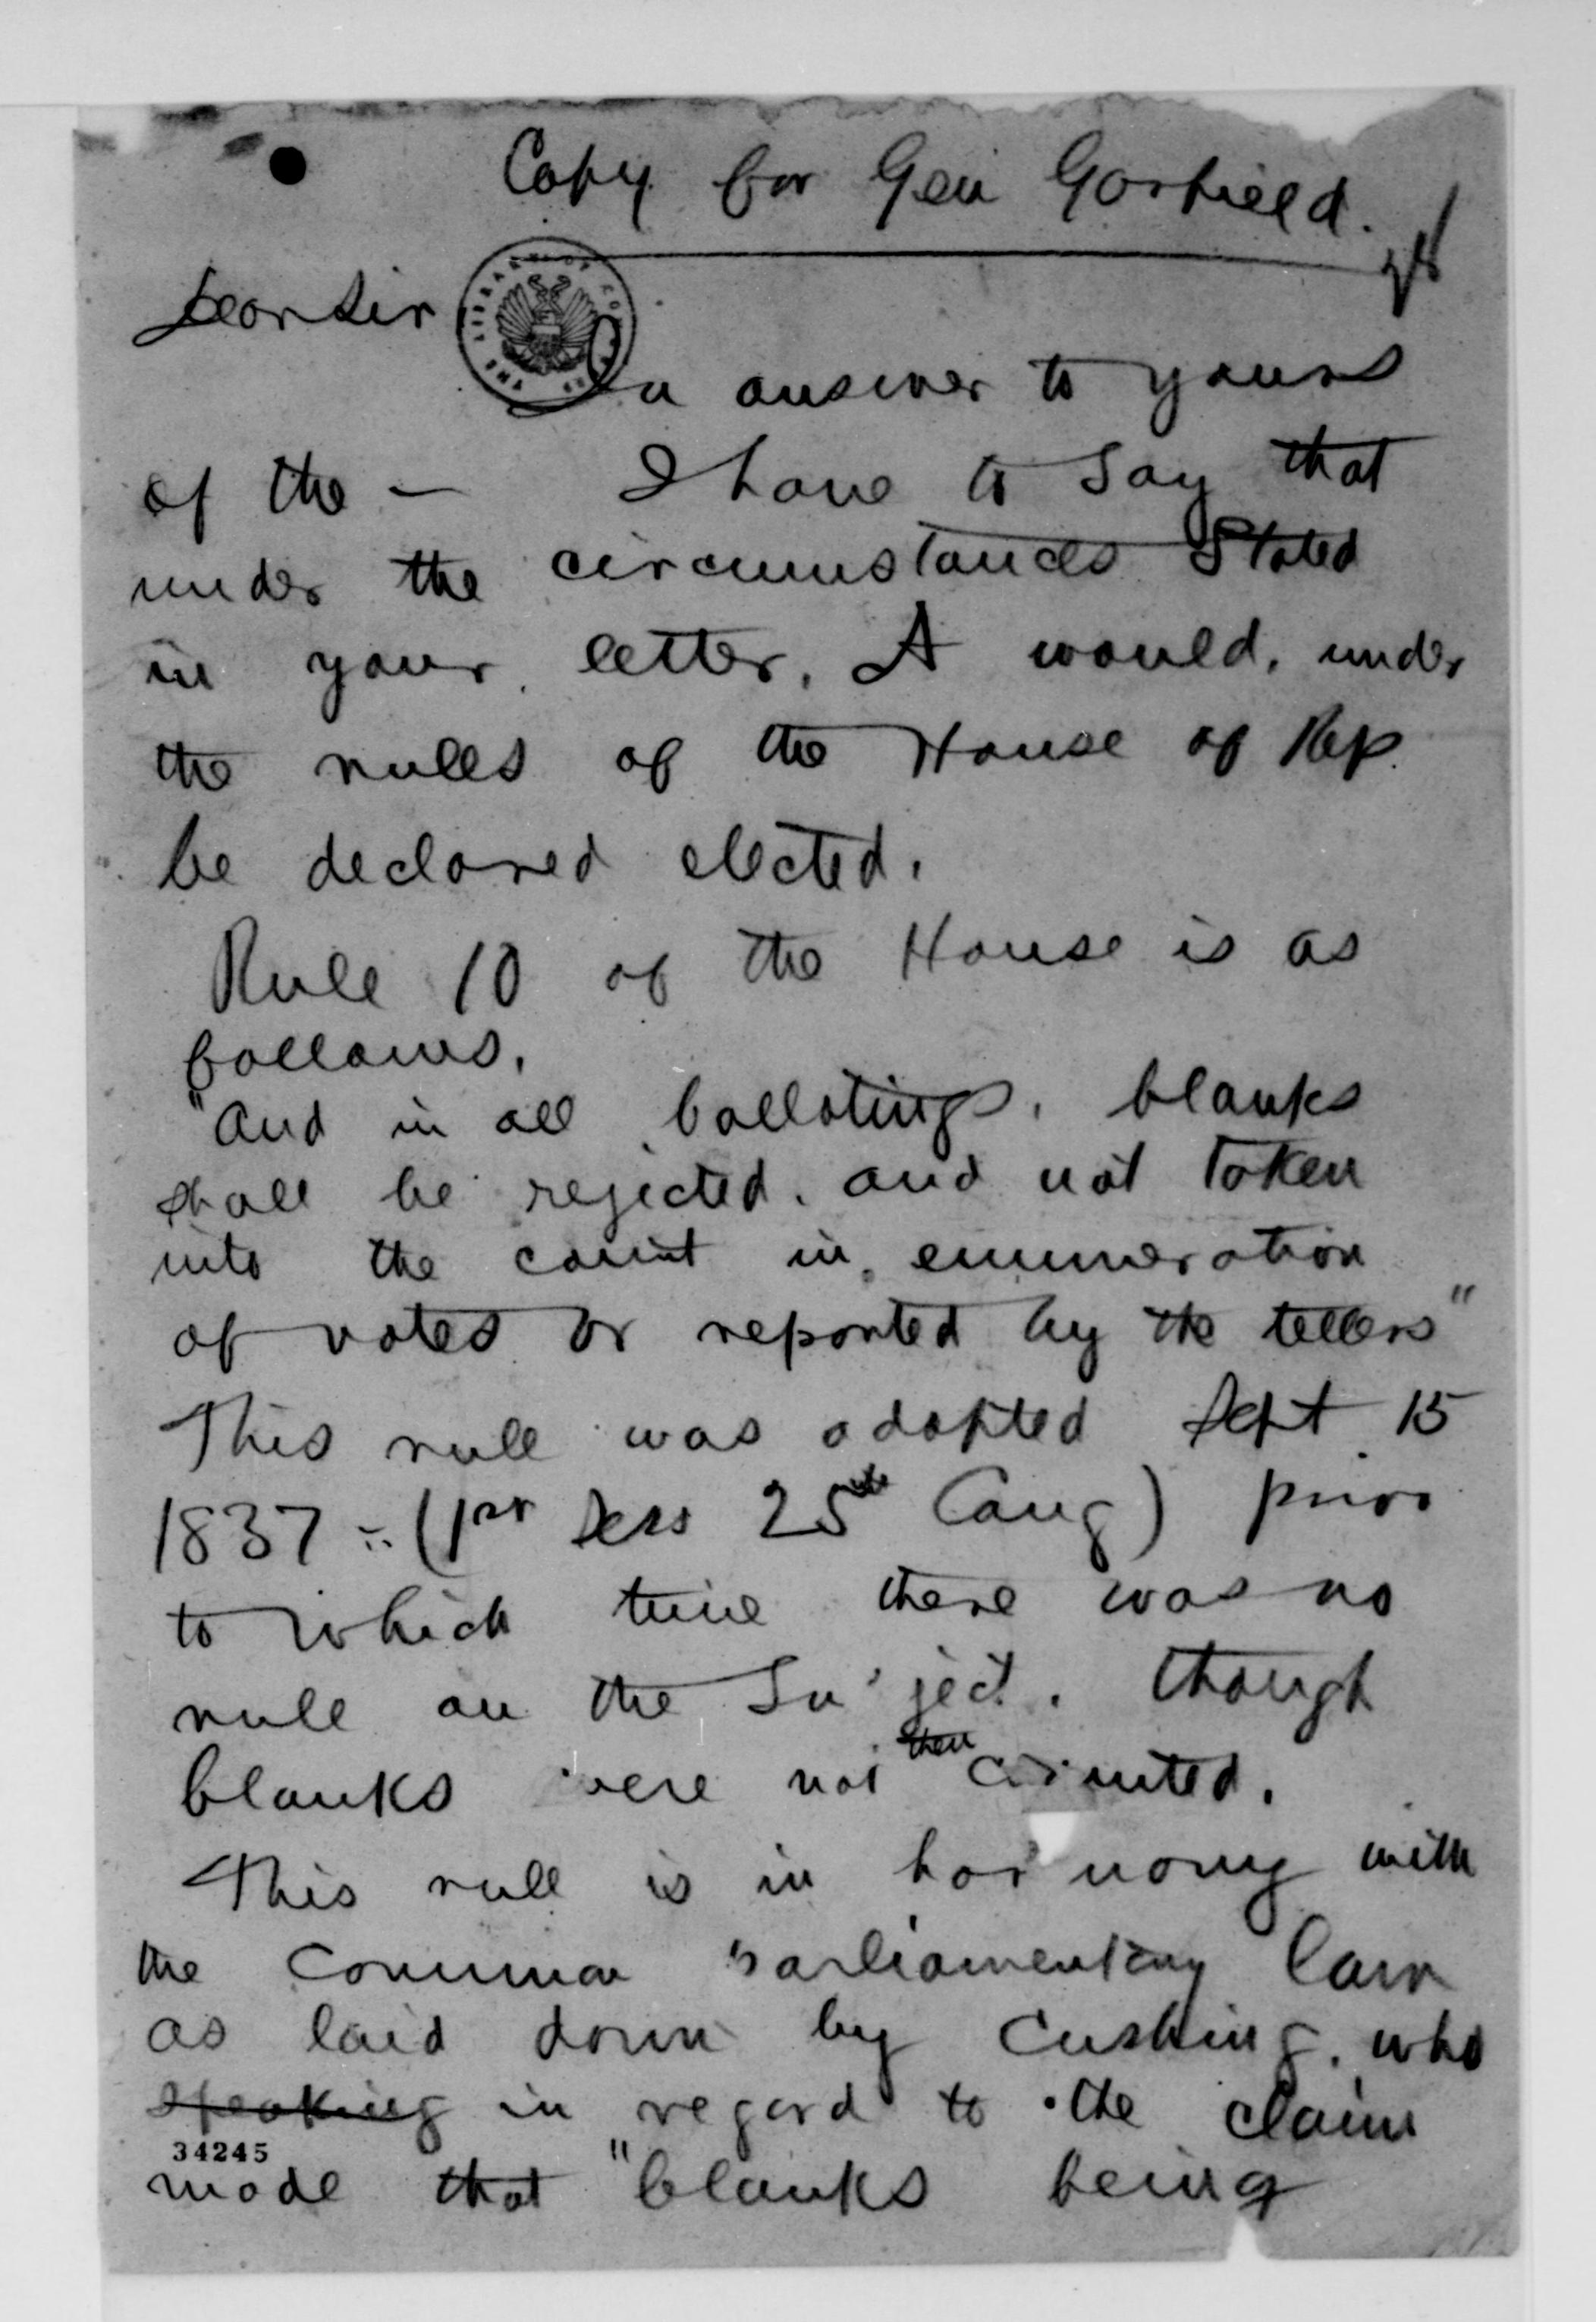 Copy for Gen Garfield.
Dear Sir
THE LIBRARY OF CONGRESS
In answer to yours
of the — I have to say that
under the circumstances stated
in your letter, A would, under
the rules of the House of Rep.
be declared elected.
Rule 10 of the House is as
follows,
"And in all ballotings, blanks
shall be rejected, and not taken
into the count in enumeration
of votes or reported by the tellers"
This rule was adopted Sept 15
1837 - (1st Sess 25th Cong) prior
to which time there was no
rule on the Su ject, though
blanks were not then counted.
This rule is in harmony with
the Common Parliamentary law
as laid down by Cushing, who
speaking in regard to the claim
34245
made that "blanks being